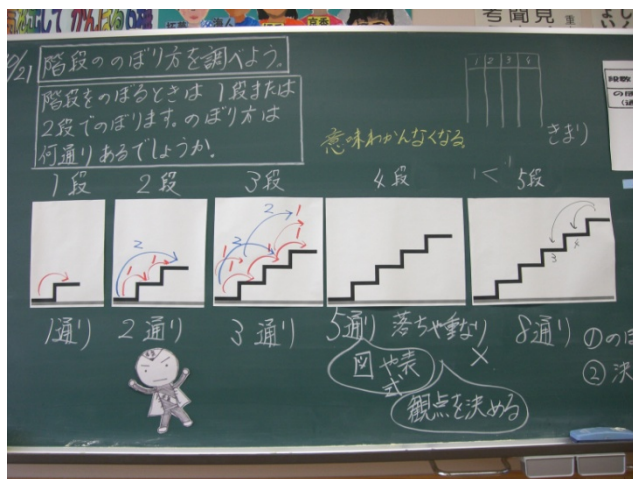 階段ののぼり方を調べよう。
階段をのぼるときは1段または
2段でのぼります。のぼり方は
何通りあるでしょうか。
1 2 3 4
きまり
意味わかんなくなる
1段 2段 3段 4段 5段
1 2 1 1
3
1通り 2通り 3通り 5通り 落ちや重なり × 8通り
図や表
式
観点を決める
①のぼ
②決
考聞見
段数